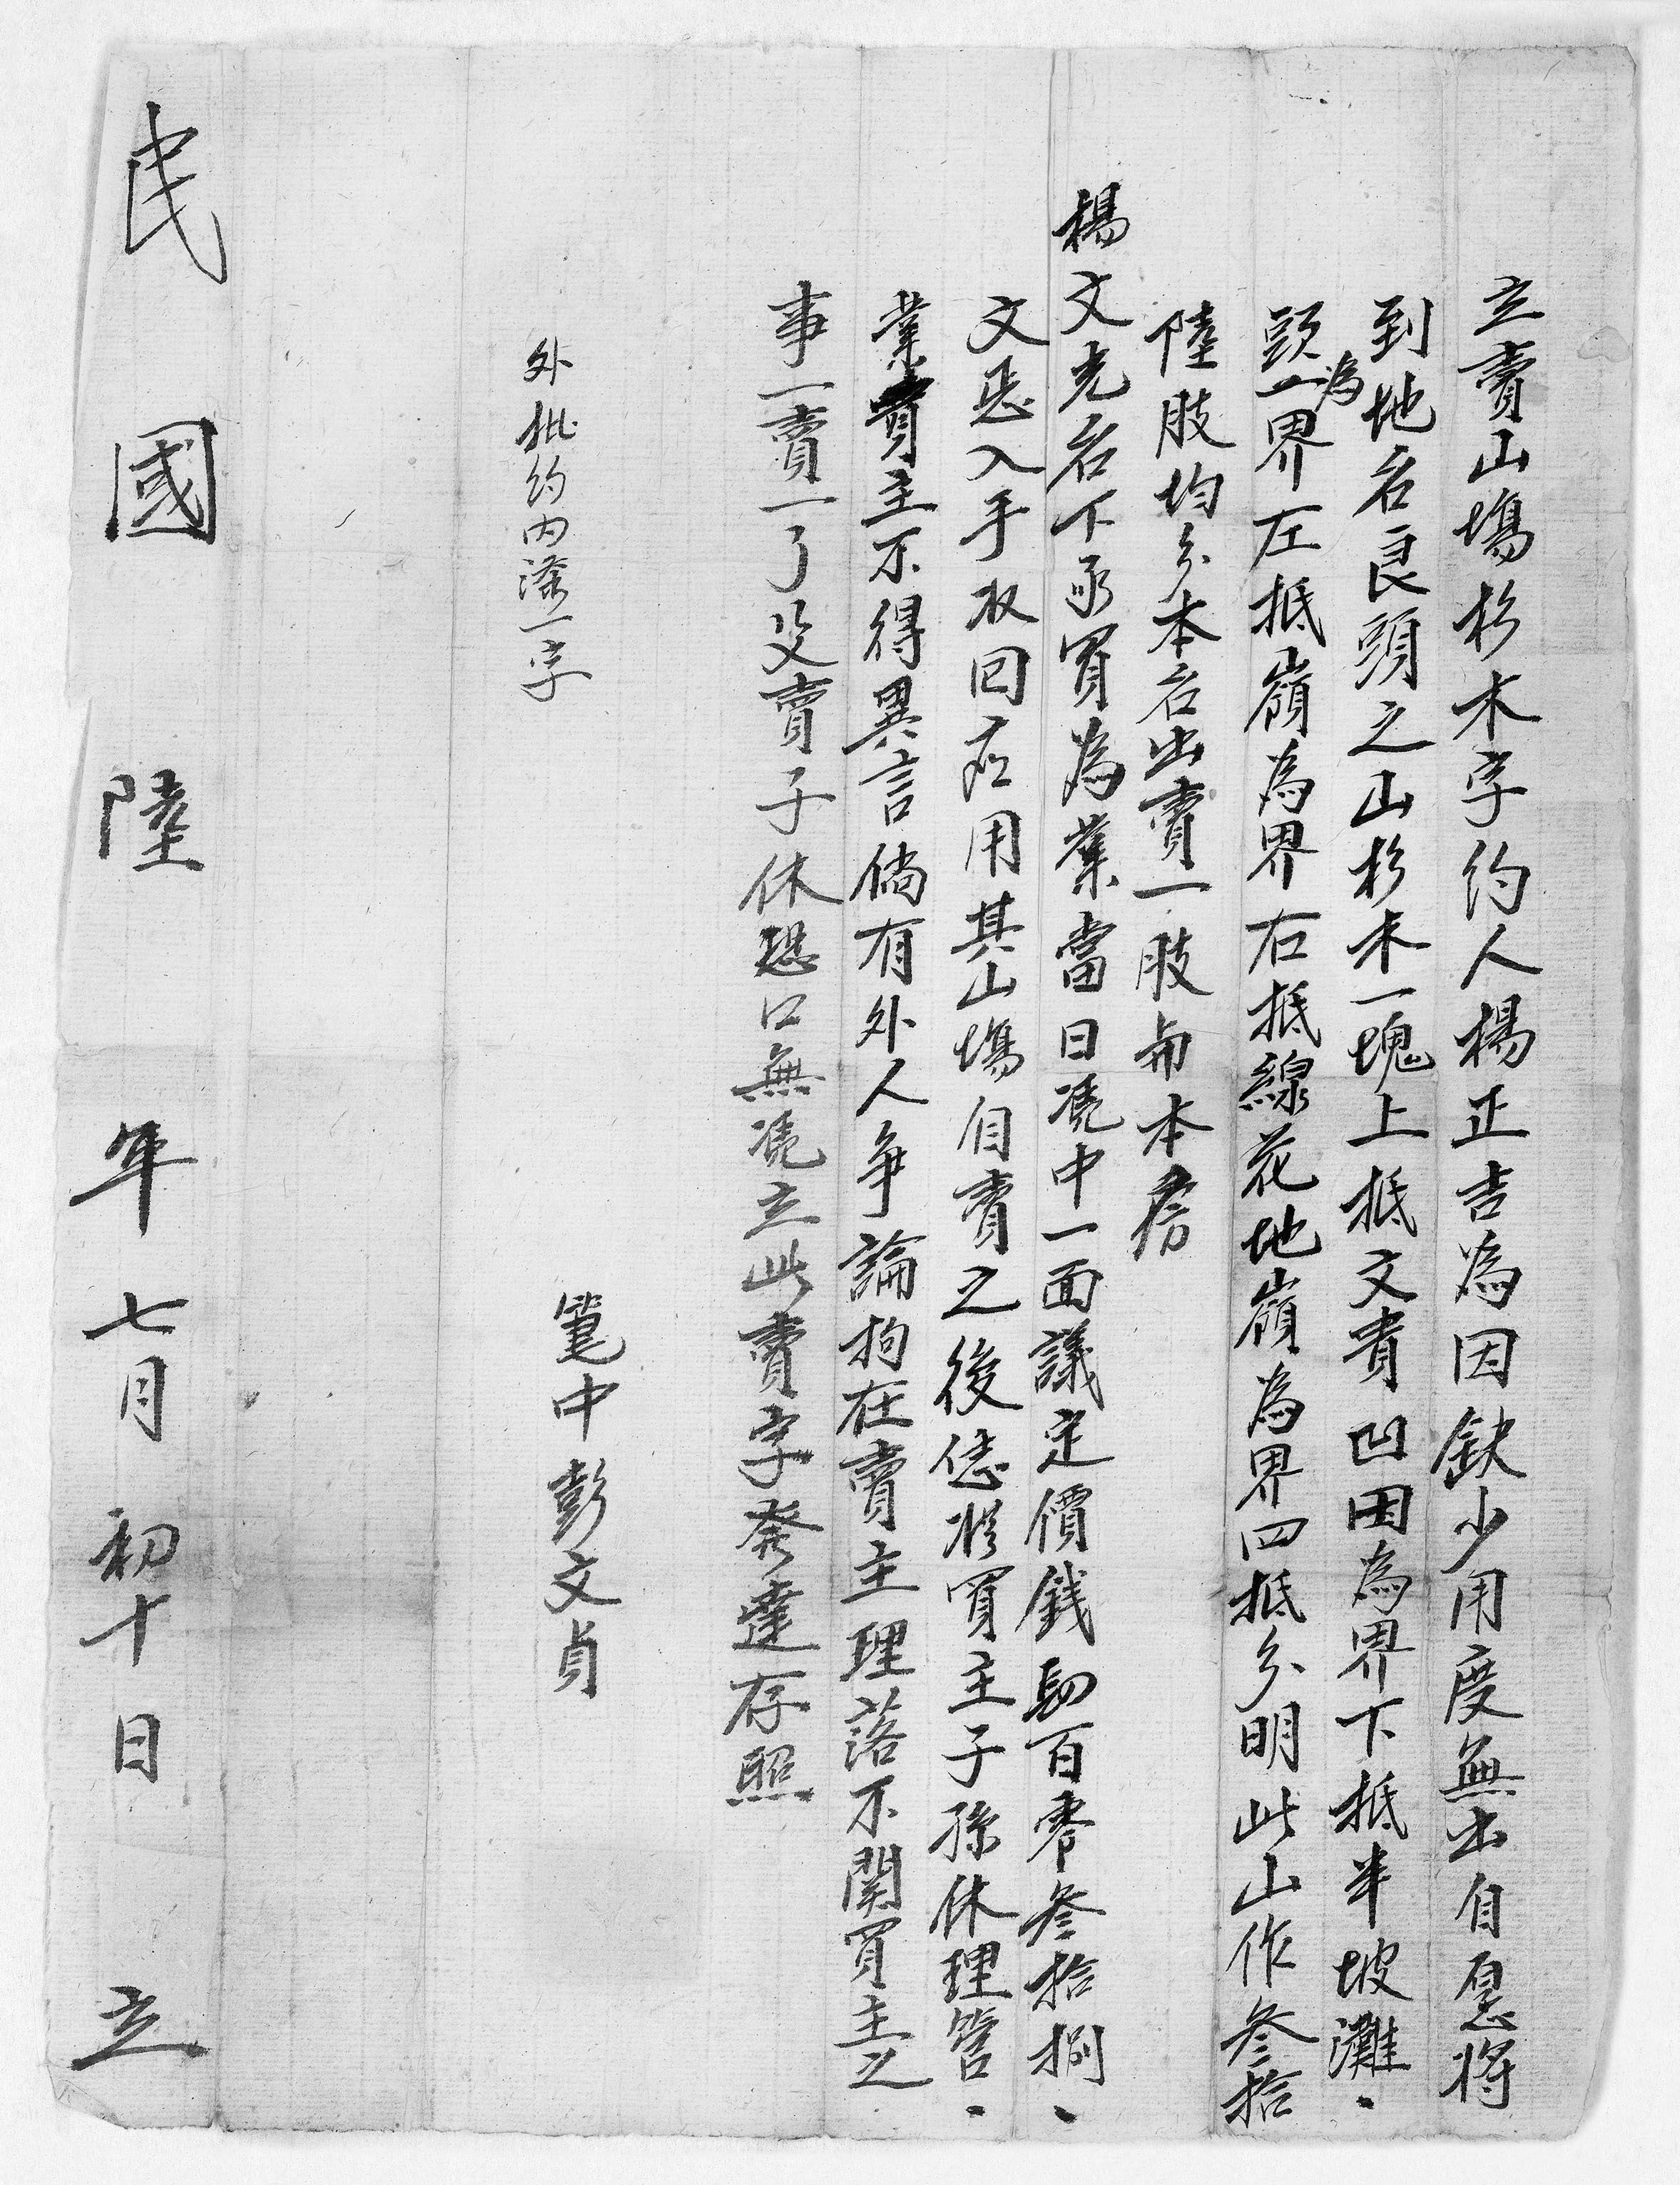 立賣山塲杉木字約人楊正吉為因缺少用度無出自愿將
到地名良頭之山杉木一塊上抵文貴凹田為界下抵半坡灘
頭為界左抵嶺為界右抵線花地嶺為界四抵分明此山作叁拾
陸股均分本名出賣一股與本房
楊文光名下承買為業當日凴中一面議定價錢四百零叁拾捌
文恁入手收回應用其山塲自賣之後恁從買主子孫休理管
業賣主不得異言倘有外人爭論拘在賣主理落不関買主之
事一賣一了父賣子休恐口無凴立此賣字發達存照
筆中彭文貞
外批約内添一字
民國陸年七月初十日立